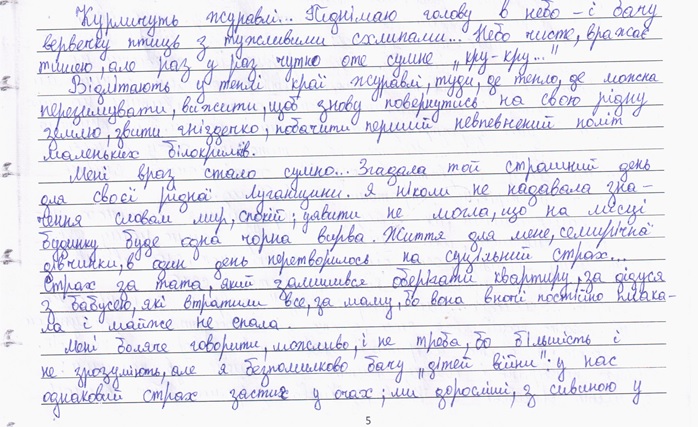 Курличуть журавлі... Піднімаю голову в небо – і бачу
вервечку птиць з тужливими схлипами... Небо чисте, вражає
тишею, але раз у раз чутно оте сумне „кру-кру..."
Відлітають у теплі краї журавлі, туди, де тепло, де можна
перезимувати, вижити, щоб знову повернутись на свою рідну
землю, звити гніздечко, побачити перший невпевнений політ
маленьких білокрилів.
Мені враз стало сумно... Згадала той страшний день
для своєї рідної Луганщини. Я ніколи не надавала зна-
чення словам мир, спокій; уявити не могла, що на місці
будинку буде одна чорна вирва. Життя для мене, семирічна
дівчинки, в один день перетворилось на суцільний страх...
Страх за тата, який залишився оберігати квартиру, за дідуся
з бабусею, які втратили все, за маму, бо вона вночі постійно плака-
ла і майже не спала.
Мені боляче говорити, можливо, і не треба, бо більшість і
не зрозуміють, але я безпомилково бачу „дітей війни": у нас
однаковий страх застиг у очах; ми дорослі, з сивиною у
5